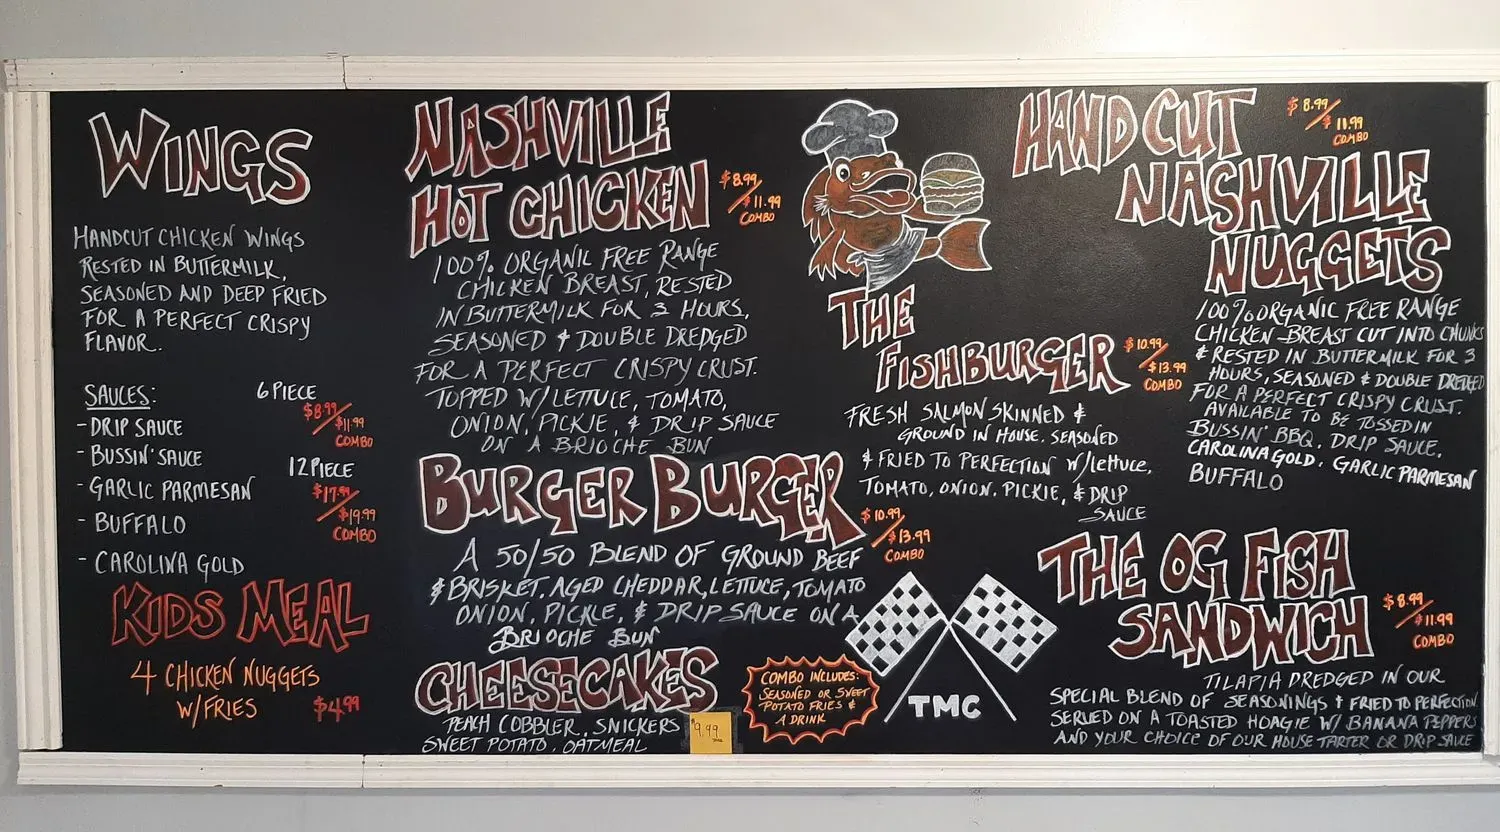 WINGS
HANDCUT CHICKEN WINGS
RESTED IN BUTTERMILK,
SEASONED AND DEEP FRIED
FOR A PERFECT CRISPY
FLAVOR.
SAUCES:
6 PIECE
$8.99/$11.99
COMBO
- DRIP SAUCE
- BUSSIN' SAUCE
12 PIECE
$17.99/$19.99
COMBO
- GARLIC PARMESAN
- BUFFALO
- CAROLINA GOLD
KIDS MEAL
4 CHICKEN NUGGETS
W/FRIES
$4.99
NASHVILLE
HOT CHICKEN
$8.99/$11.99
COMBO
100% ORGANIC FREE RANGE
CHICKEN BREAST, RESTED
IN BUTTERMILK FOR 3 HOURS,
SEASONED & DOUBLE DREDGED
FOR A PERFECT CRISPY CRUST.
TOPPED W/LETTUCE, TOMATO,
ONION, PICKIE, & DRIP SAUCE
ON A BRIOCHE BUN
BURGER BURGER
$10.99/$13.99
COMBO
A 50/50 BLEND OF GROUND BEEF
& BRISKET, AGED CHEDDAR, LETTUCE, TOMATO
ONION, PICKLE, & DRIP SAUCE ON A
BRIOCHE BUN
CHEESECAKES
PEACH COBBLER, SNICKERS
SWEET POTATO, OATMEAL
$9.99
THE
FISHBURGER
$10.99/$13.99
COMBO
FRESH SALMON SKINNED &
GROUND IN HOUSE. SEASONED
& FRIED TO PERFECTION W/LETTUCE,
TOMATO, ONION, PICKIE, & DRIP
SAUCE
COMBO INCLUDES:
SEASONED OR SWEET
POTATO FRIES &
A DRINK
TMC
HAND CUT
NASHVILLE
NUGGETS
$8.99/$11.99
COMBO
100% ORGANIC FREE RANGE
CHICKEN BREAST CUT INTO CHUNKS
& RESTED IN BUTTERMILK FOR 3
HOURS, SEASONED & DOUBLE DREDGED
FOR A PERFECT CRISPY CRUST.
AVAILABLE TO BE TOSSED IN
BUSSIN' BBQ, DRIP SAUCE,
CAROLINA GOLD, GARLIC PARMESAN
BUFFALO
THE OG FISH
SANDWICH
$8.99/$11.99
COMBO
TILAPIA DREDGED IN OUR
SPECIAL BLEND OF SEASONINGS & FRIED TO PERFECTION.
SERVED ON A TOASTED HOAGIE W/ BANANA PEPPERS
AND YOUR CHOICE OF OUR HOUSE TARTER OR DRIP SAUCE